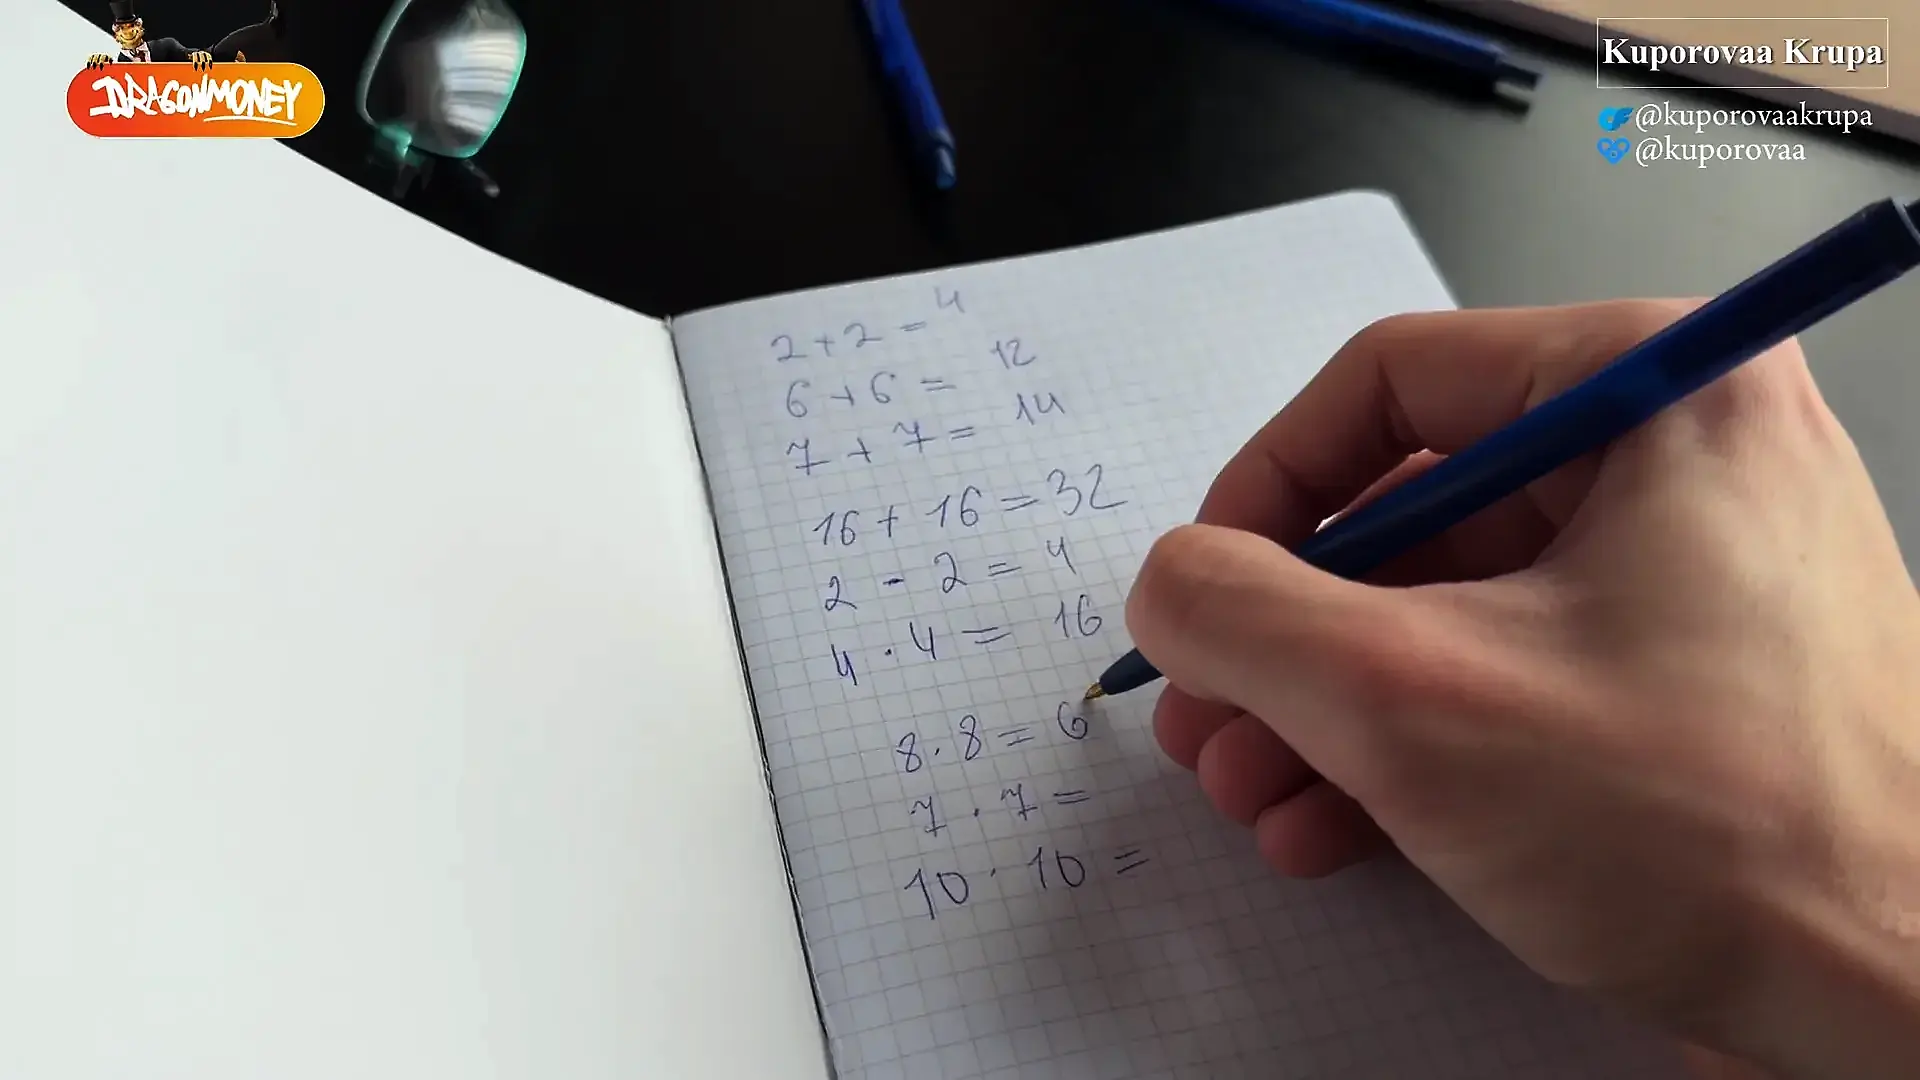 DRAGONMONEY
Kuporovaa Krupa
@kuporovaakrupa
@kuporovaa
2 + 2 = 4
6 + 6 = 12
7 + 7 = 14
16 + 16 = 32
2 - 2 = 4
4 · 4 = 16
8 · 8 = 6
7 · 7 =
10 · 10 =